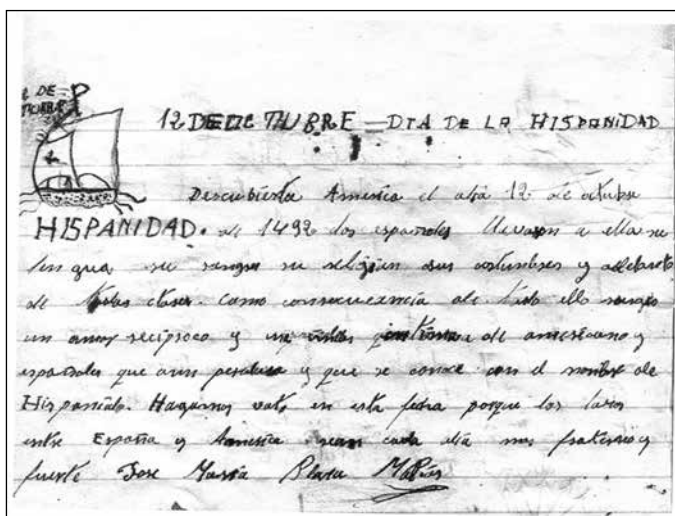 12 DE OCTUBRE — DIA DE LA HISPANIDAD
Descubierta America el dia 12 de octubre
HISPANIDAD. de 1492 los españoles llevaron a ella su
lengua su sangre su religion sus costumbres y
de todas clases. Como consecuencia de todo ello surge
un amor reciproco y una de americanos y
españoles que aun perdura y que se conoce con el nombre de
Hispanidad. Hagamos voto en esta fecha porque los lazos
entre España y America sean cada dia mas fraternos y
fuerte Jose Maria